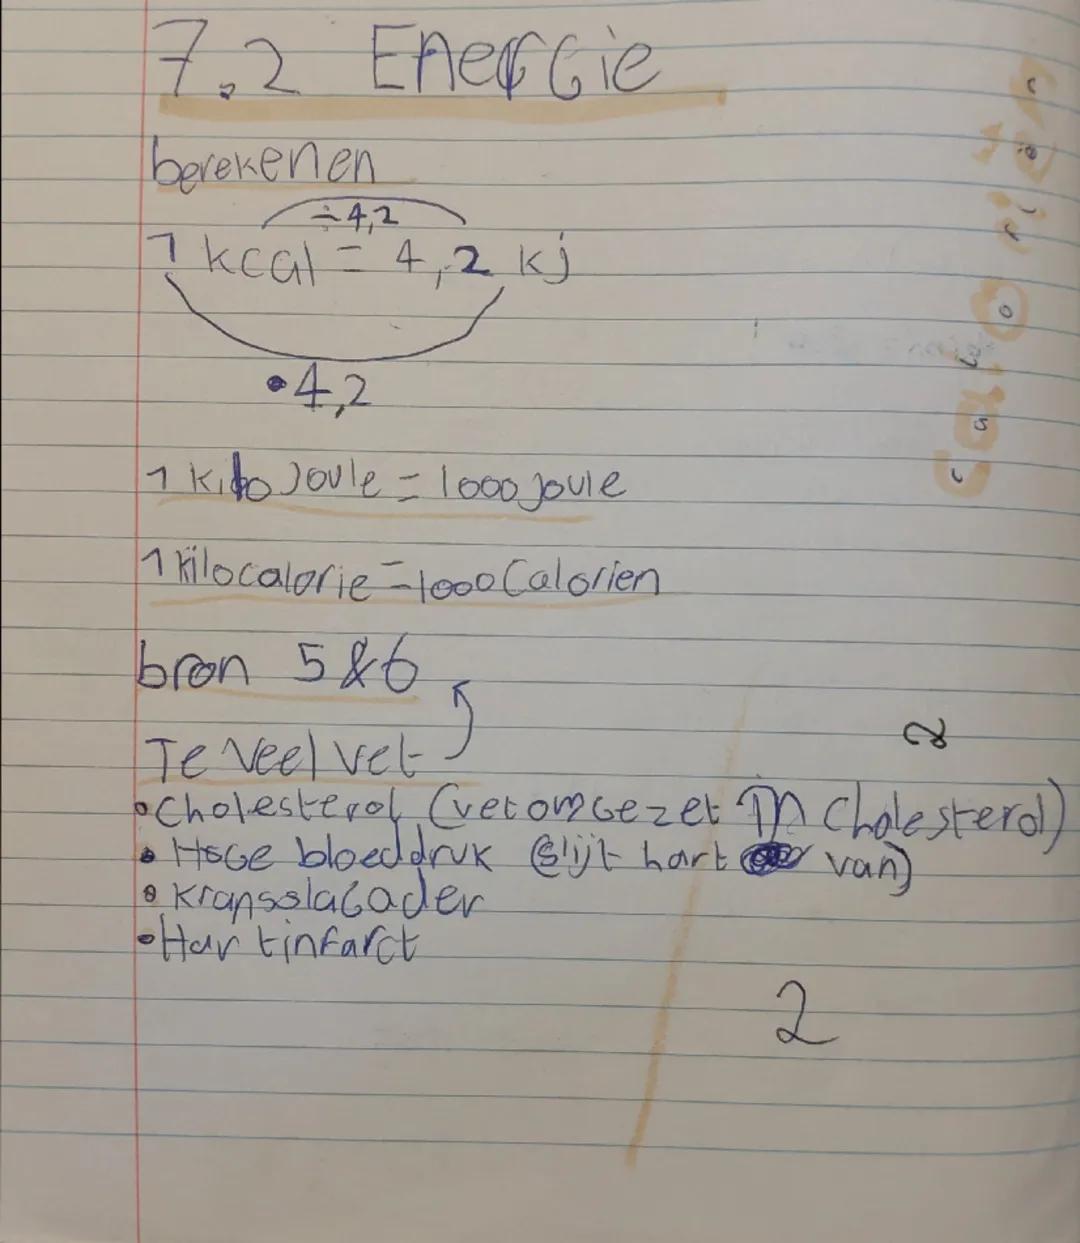 7.2 Energie
berekenen
÷4,2
1 kcal = 4,2 kj
•4,2
1 kilo Joule = 1000 joule
1 kilocalorie = 1000 Calorien
bron 5 & 6
Te veel vet
• Cholesterol (vet omgezet in cholesterol)
• Hoge bloeddruk (slijt hart van)
• Kransslagader
• Hartinfarct
2
2